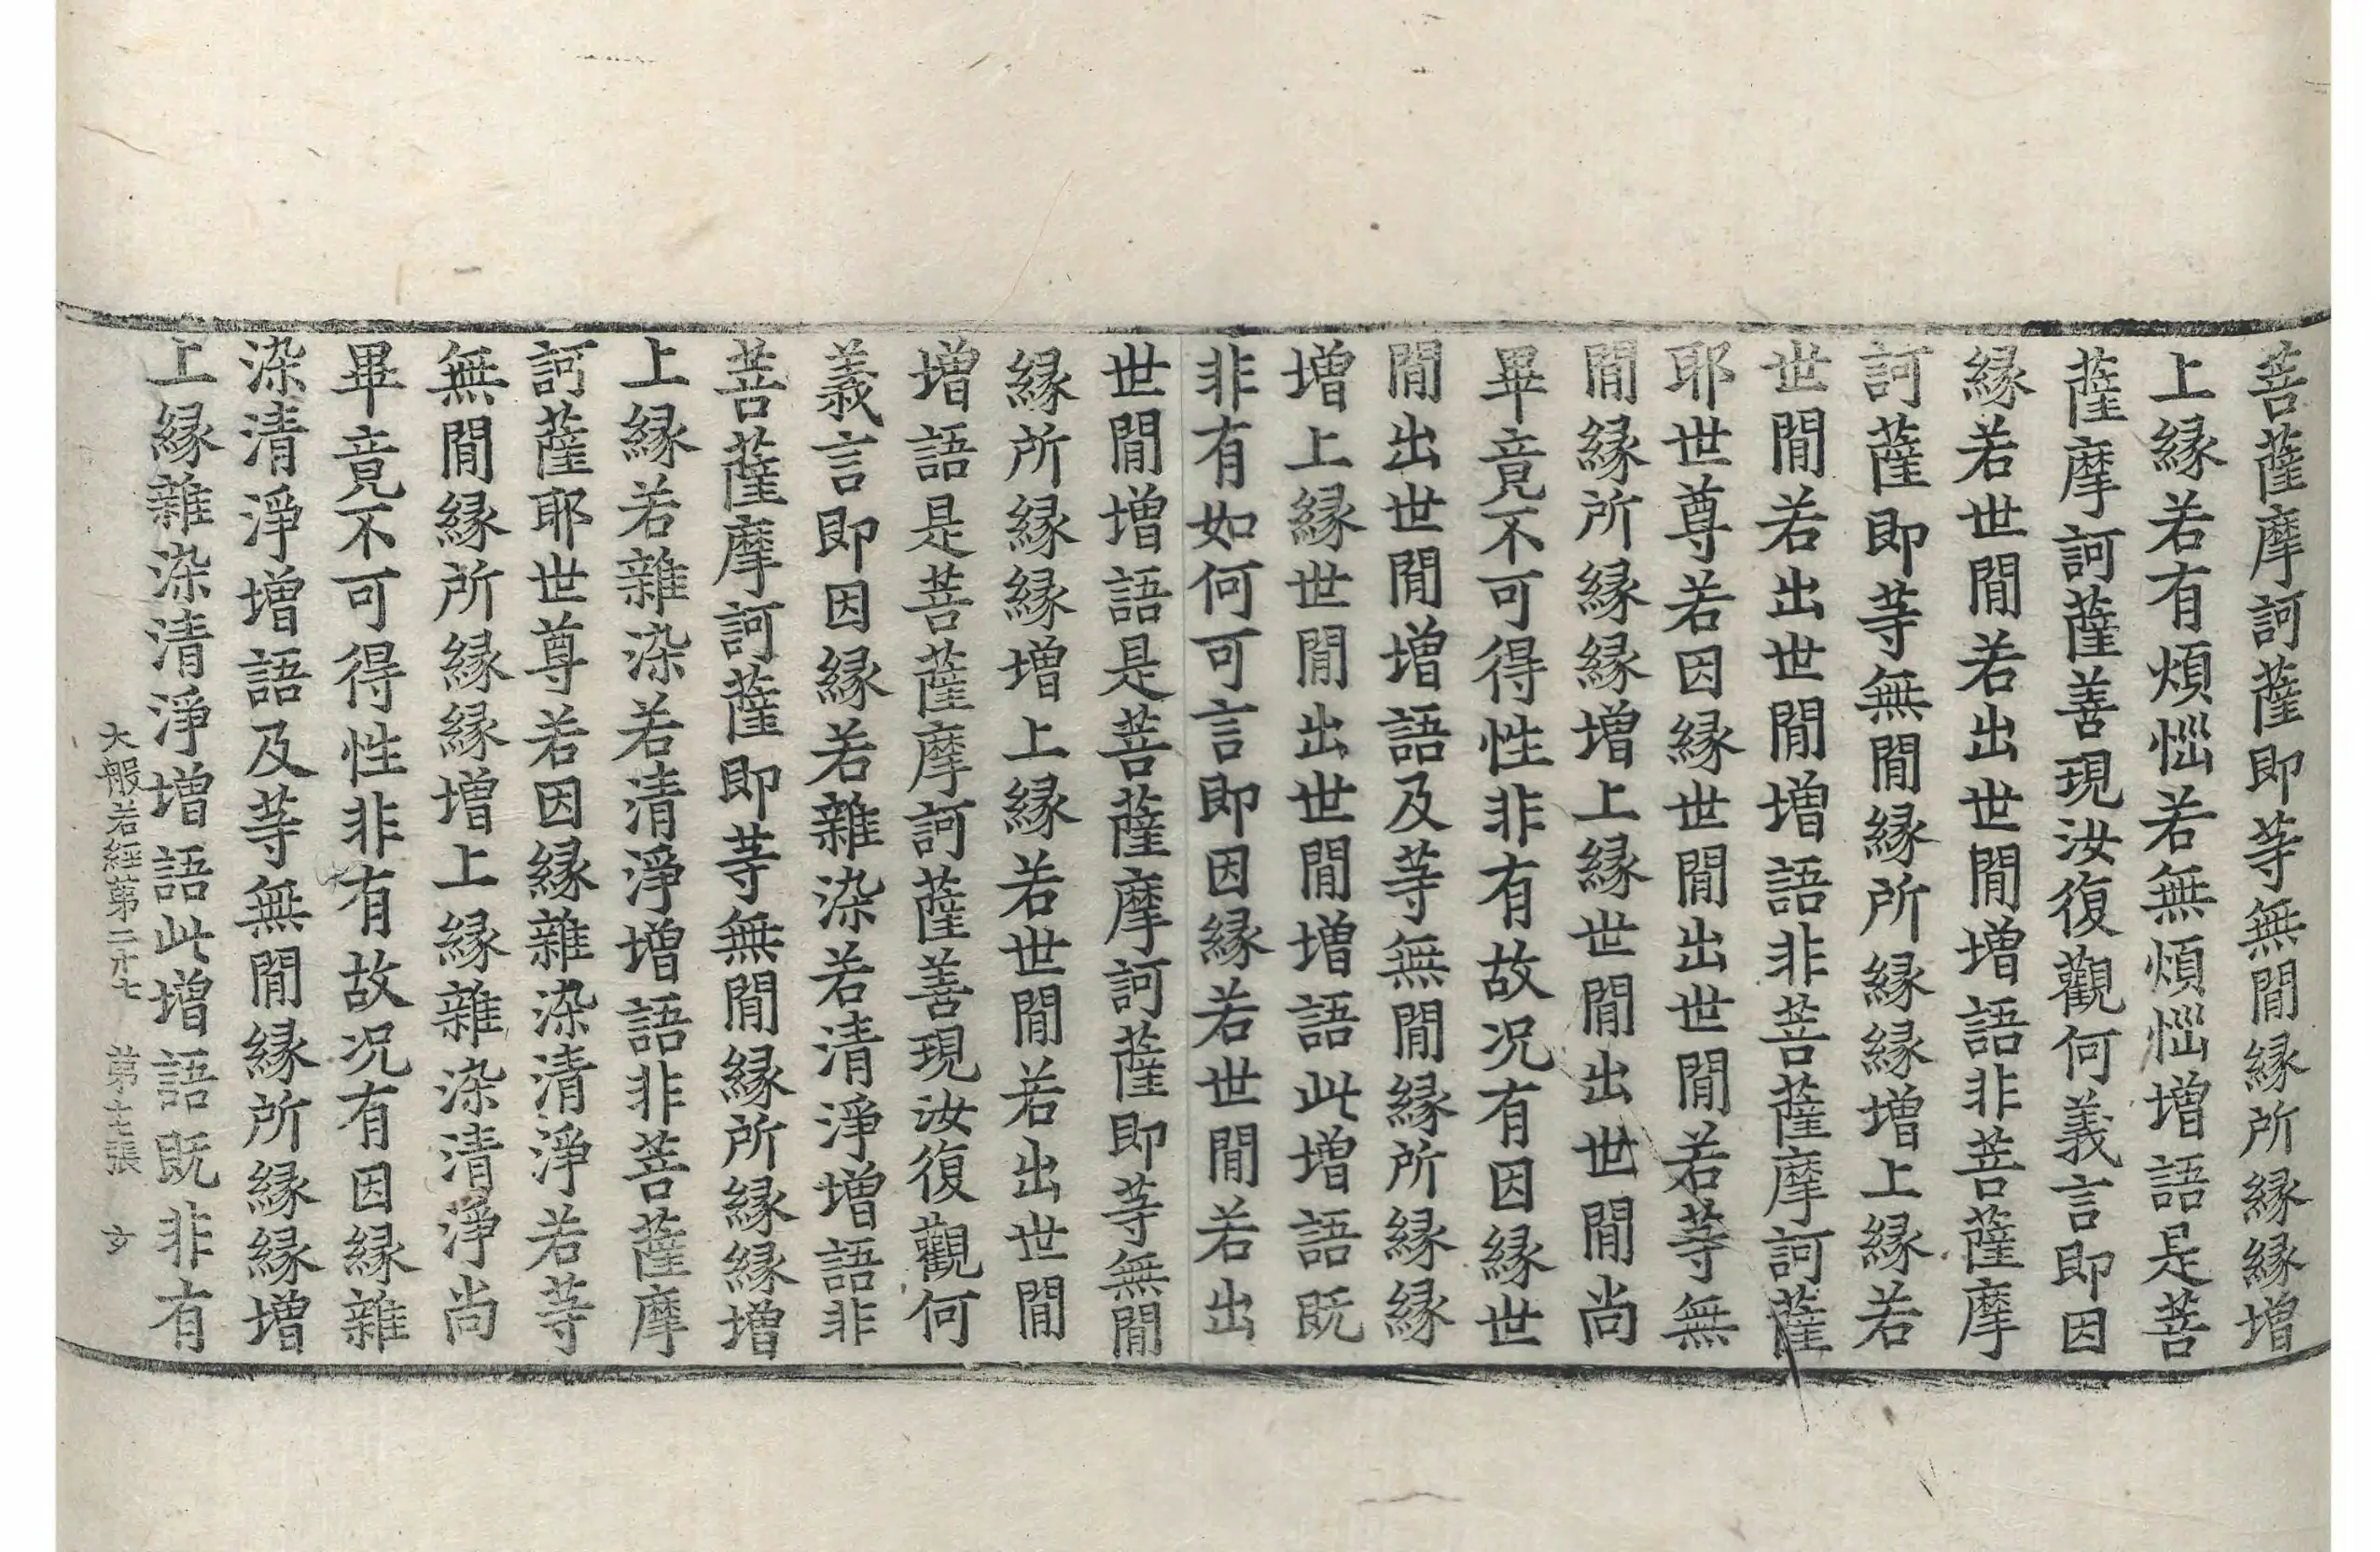 菩薩摩訶薩即等無閒縁所縁縁增
上縁若有煩惱若無煩惱增語是菩
薩摩訶薩善現汝復觀何義言即因
縁若世閒若出世閒增語非菩薩摩
訶薩即等無閒縁所縁縁增上縁若
世閒若出世閒增語非菩薩摩訶薩
耶世尊若因縁世閒出世閒若等無
閒縁所縁縁增上縁世閒出世閒尚
畢竟不可得性非有故况有因縁世
閒出世閒增語及等無閒縁所縁縁
增上縁世閒出世閒增語此增語既
非有如何可言即因縁若世閒若出
世閒增語是菩薩摩訶薩即等無閒
縁所縁縁增上縁若世閒若出世閒
增語是菩薩摩訶薩善現汝復觀何
義言即因縁若雜染若清淨增語非
菩薩摩訶薩即等無閒縁所縁縁增
上縁若雜染若清淨增語非菩薩摩
訶薩耶世尊若因縁雜染清淨若等
無閒縁所縁縁增上縁雜染清淨尚
畢竟不可得性非有故况有因縁雜
染清淨增語及等無閒縁所縁縁增
上縁雜染清淨增語此增語既非有
大般若經第二十七 第七張 女